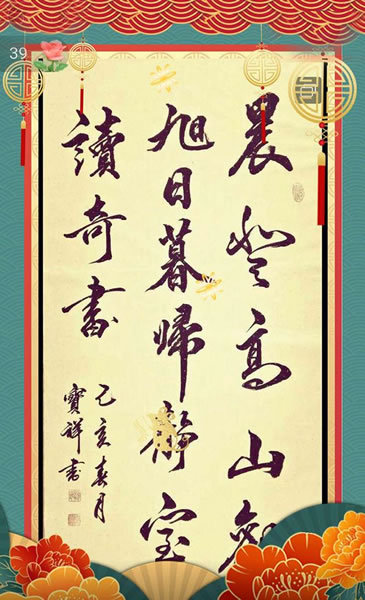 39
晨登高山觀
旭日暮歸靜室
讀奇書
己亥春月
寶祥書